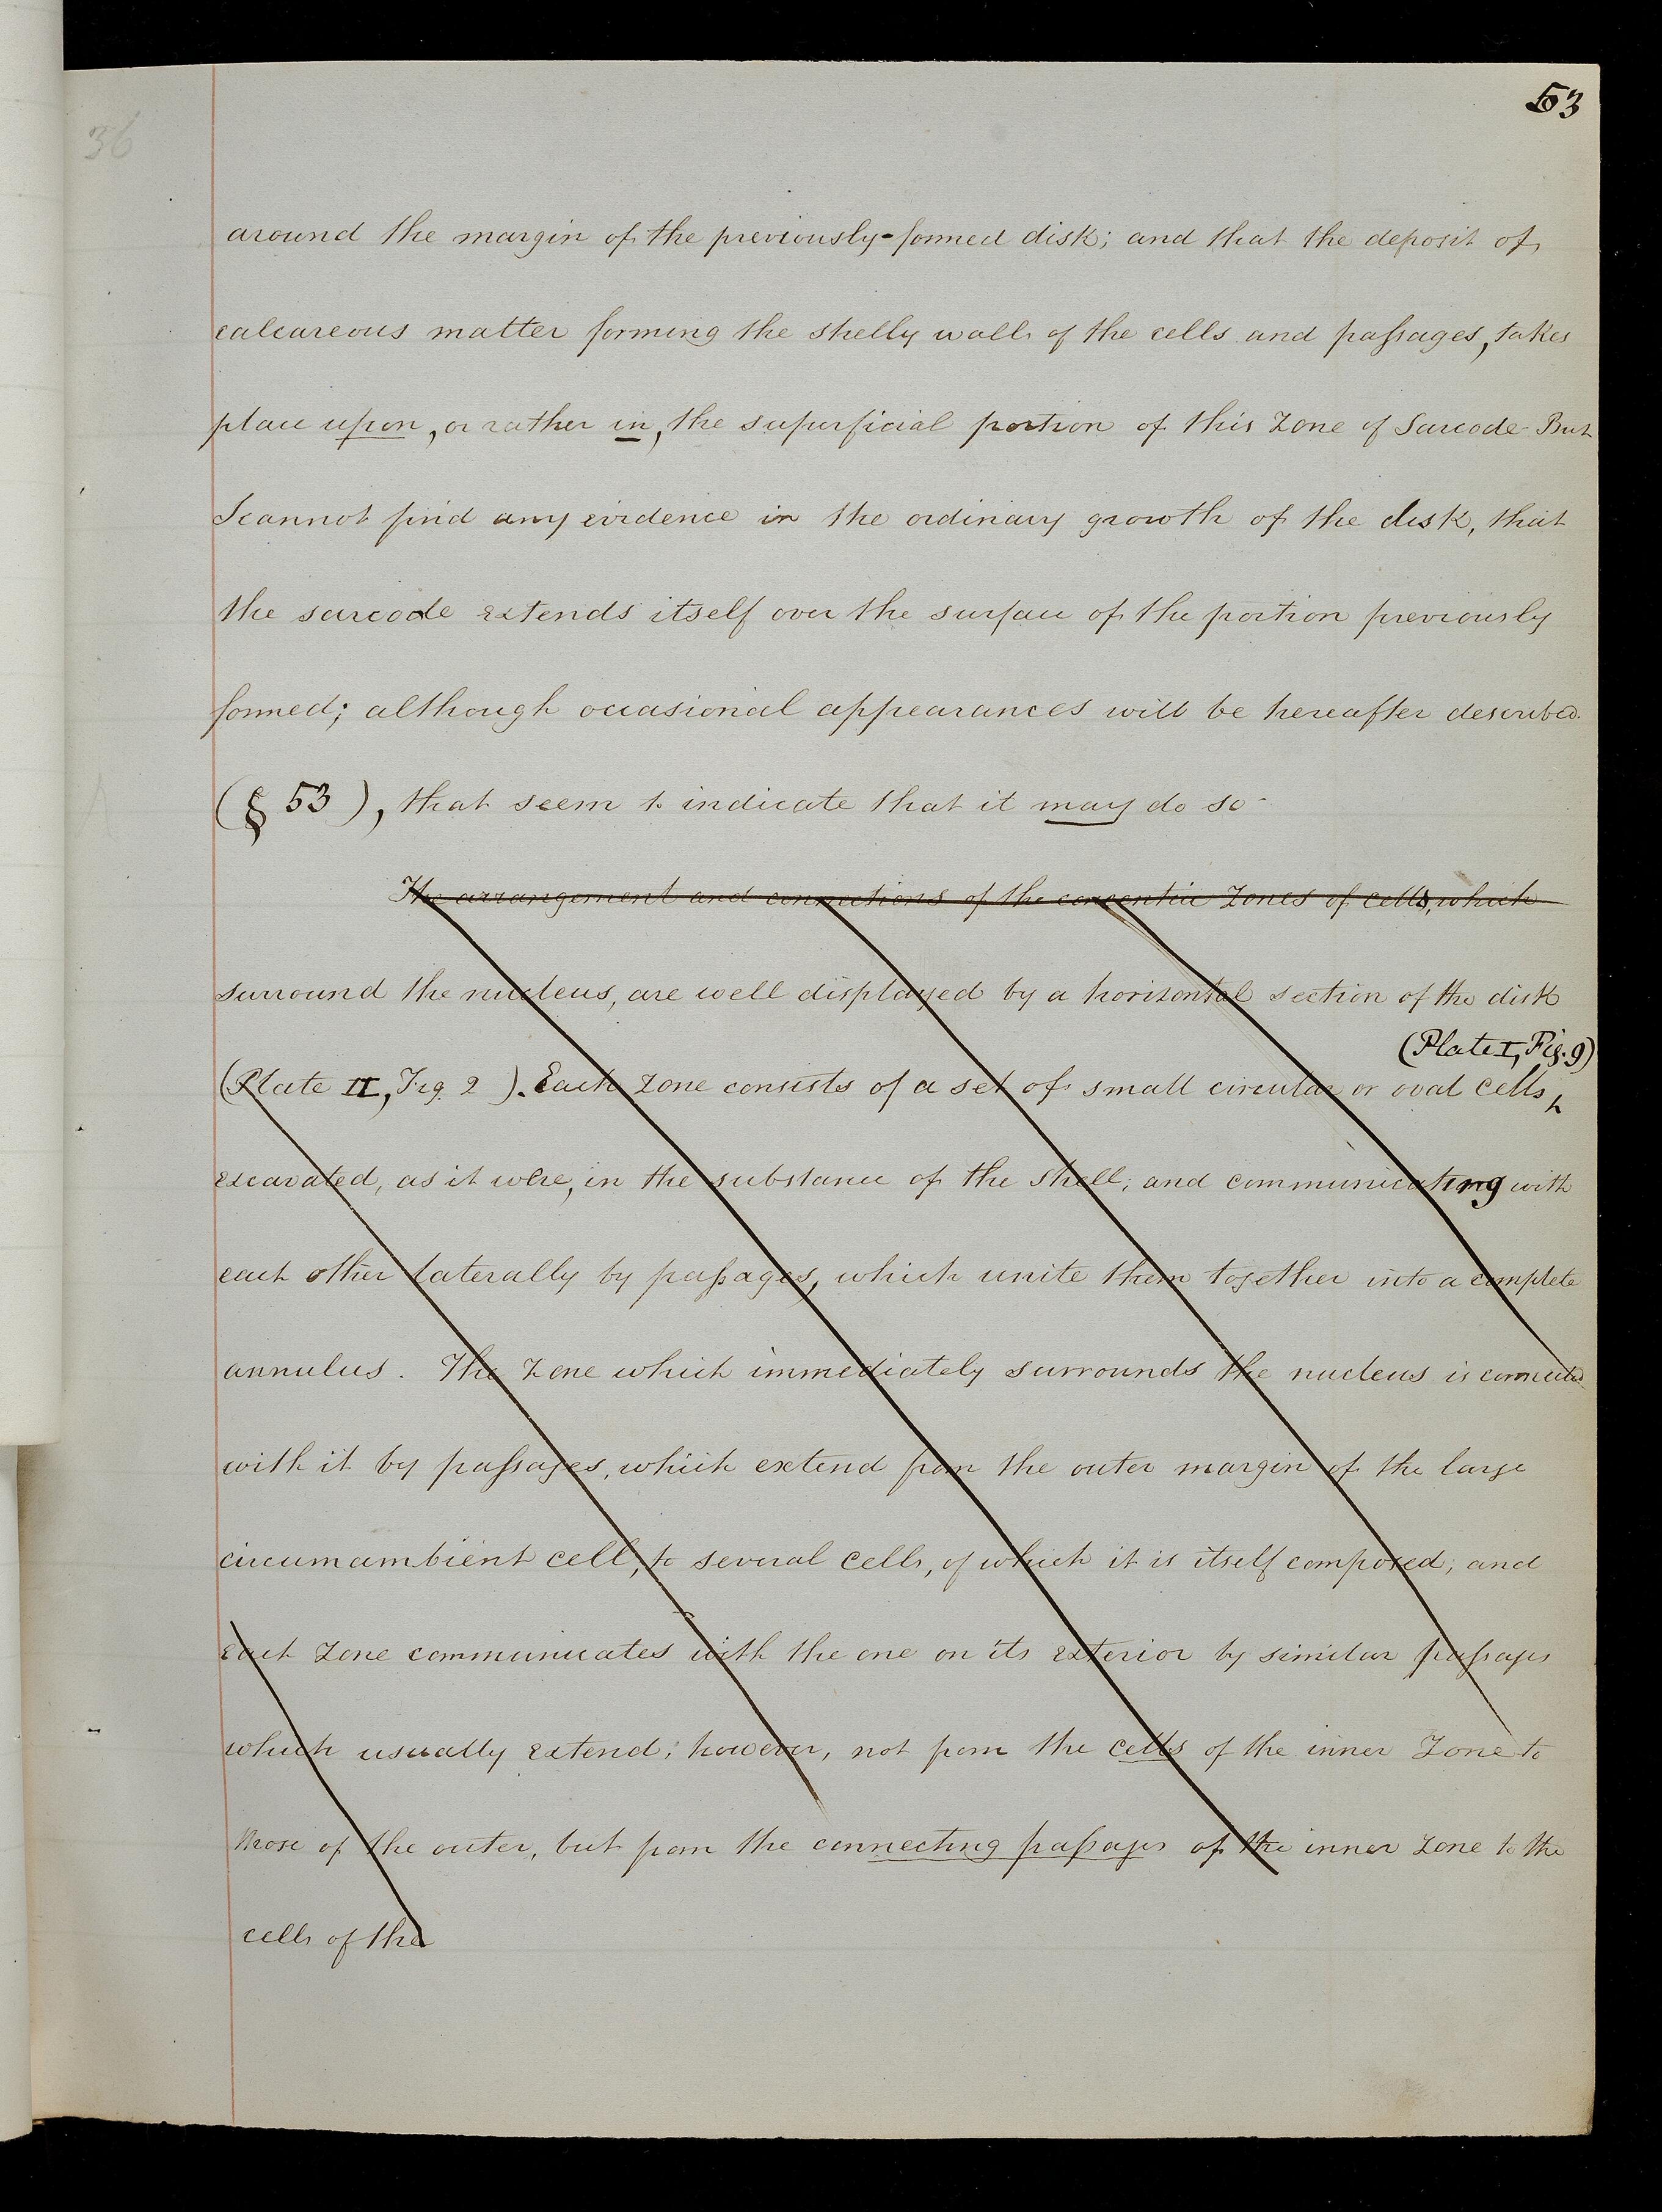 53
36
around the margin of the previously-formed disk; and that the deposit of
calcareous matter forming the shelly walls of the cells and passages, takes
place upon, or rather in, the superficial portion of this zone of Sarcode. But
I cannot find any evidence in the ordinary growth of the disk, that
the sarcode extends itself over the surface of the portion previously
formed; although occasional appearances will be hereafter described
(§ 53), that seem to indicate that it may do so.
The arrangement and connections of the concentric zones of cells, which
surround the nucleus, are well displayed by a horizontal section of the disk
(Plate I, Fig. 9)
(Plate II, Fig. 2 ). Each zone consists of a set of small circular or oval cells,
excavated, as it were, in the substance of the shell; and communicating with
each other laterally by passages, which unite them together into a complete
annulus. The zone which immediately surrounds the nucleus is connected
with it by passages, which extend from the outer margin of the large
circumambient cell, to several cells, of which it is itself composed; and
each zone communicates with the one on its exterior by similar passages
which usually extend, however, not from the cells of the inner zone to
those of the outer, but from the connecting passages of the inner zone to the
cells of the